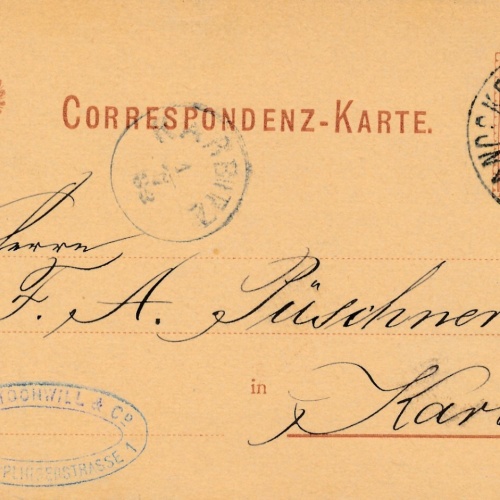 CORRESPONDENZ-KARTE.
KARBITZ
1
83
Herrn
F. A. Püschner
in Kar
OCHWILL & Co
PLITZERSTRASSE 1